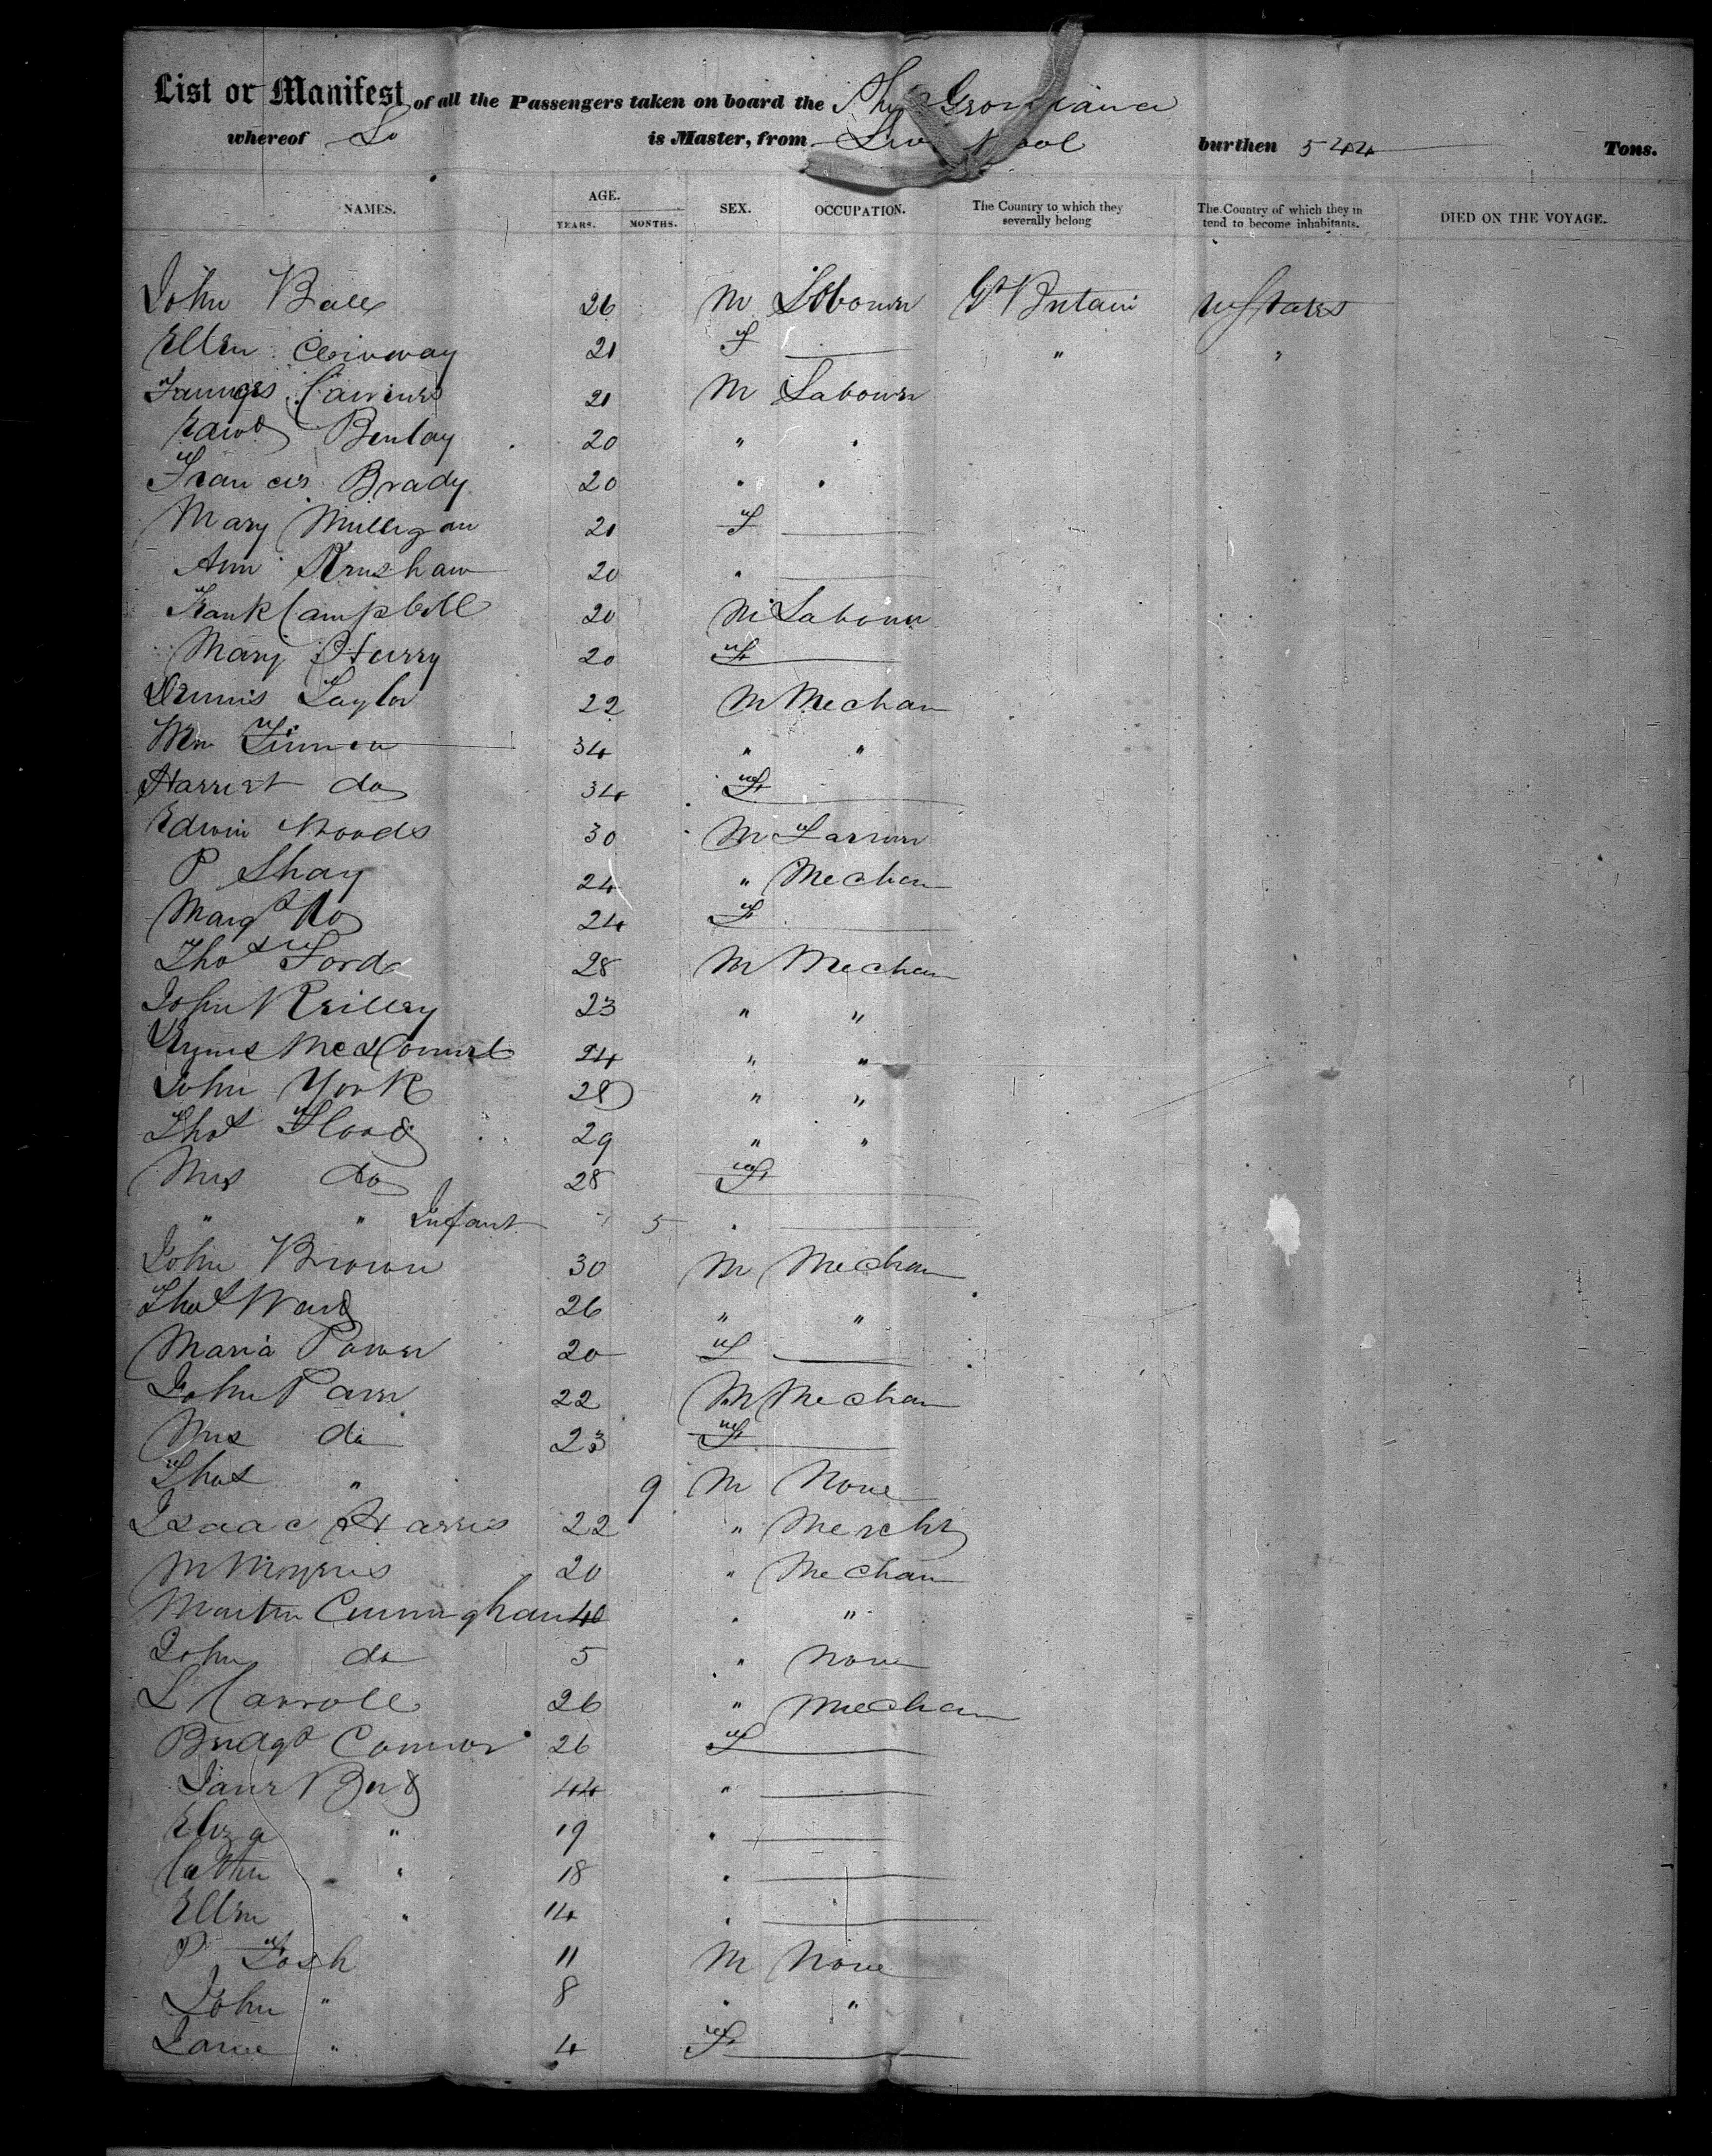 List or Manifest of all the Passengers taken on board the Ship
whereof is Master, from burthen 544 Tons.
NAMES. AGE. YEARS. MONTHS. SEX. OCCUPATION. The Country to which they severally belong The Country of which they in tend to become inhabitants. DIED ON THE VOYAGE.
John Ball 26 M Labourer Gt Britain U States
Ellen 21 F " "
21 M Labourer
Edwd 20 " "
Francis Brady 20 " "
Mary Mulligan 21 F
Ann 20 "
Frank Campbell 20 M Labourer
Mary 20 F
Dennis Taylor 22 M Mechan
Wm 34 " "
Harriet do 34 F
Edwin Woods 30 M Farmer
P Shay 24 " Mechan
Margt Do 24 F
Thos Ford 28 M Mechan
John Reilley 23 " "
24 " "
John York 28 " "
Thos Flood 29 " "
Mrs do 28 F
" " Infant 5 "
John Brown 30 M Mechan
Thos Ward 26 " "
Maria Power 20 F
John Parr 22 M Mechan
Mrs do 23 F
Thos " 9 M None
Isaac Harris 22 " Mercht
M 20 " Mechan
Martin Cunningham 40 " "
John do 5 " None
L Carroll 26 " Mechan
Bridgt Connor 26 F
Jane 44 "
Eliza " 19 "
Cathn " 18 "
Ellen " 14 "
P 11 M None
John " 8 " "
Jane " 4 F